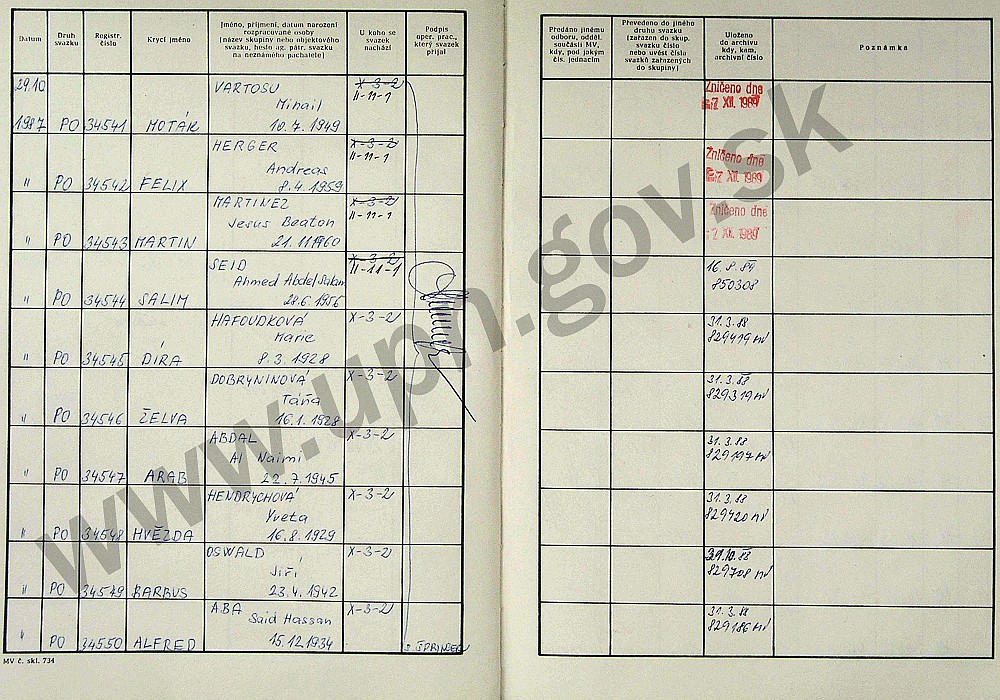 Datum
Druh
svazku
Registr.
číslo
Krycí jméno
Jméno, příjmení, datum narození
rozpracované osoby
(název skupiny nebo objektového
svazku, heslo ag. pátr. svazku
na neznámého pachatele)
U koho se
svazek
nachází
Podpis
oper. prac.,
který svazek
přijal
Předáno jinému
odboru, odděl.
součásti MV,
kdy, pod jakým
čís. jednacím
Převedeno do jiného
druhu svazku
(zařazen do skup.
svazku číslo
nebo uvést čísla
svazků zařazených
do skupiny)
Uloženo
do archivu
kdy, kam,
archivní číslo
Poznámka
29.10
1987 PO 34541 MOTÁK
VARTOSU
Mihail
10.7.1949
X-3-2
II-11-1
Zničeno dne
7 XII. 1989
" PO 34542 FELIX
HERGER
Andreas
8.4.1959
X-3-2
II-11-1
Zničeno dne
7 XII. 1989
" PO 34543 MARTIN
MARTINEZ
Jesus Beaton
21.11.1960
X-3-2
II-11-1
Zničeno dne
7 XII. 1989
" PO 34544 SALIM
SEID
Ahmed Abdel Salam
28.6.1956
X-3-2
II-11-1
16.8.89
850308
" PO 34545 DÍRA
HAFOUDKOVÁ
Marie
8.3.1928
X-3-2
31.3.88
829419 MV
" PO 34546 ŽELVA
DOBRYNINOVÁ
Táňa
16.1.1928
X-3-2
31.3.88
829319 MV
" PO 34547 ARAB
ABDAL
Al Naimi
22.7.1945
X-3-2
31.3.88
829197 MV
" PO 34548 HVĚZDA
HENDRYCHOVÁ
Yveta
16.8.1929
X-3-2
31.3.88
829420 MV
" PO 34549 BARBUS
OSWALD
Jiří
23.4.1942
X-3-2
31.10.88
829708 MV
" PO 34550 ALFRED
ABA
Said Hassan
15.12.1934
X-3-2
ŠPRINGER
31.3.88
829186 MV
MV č. skl. 734
www.upn.gov.sk